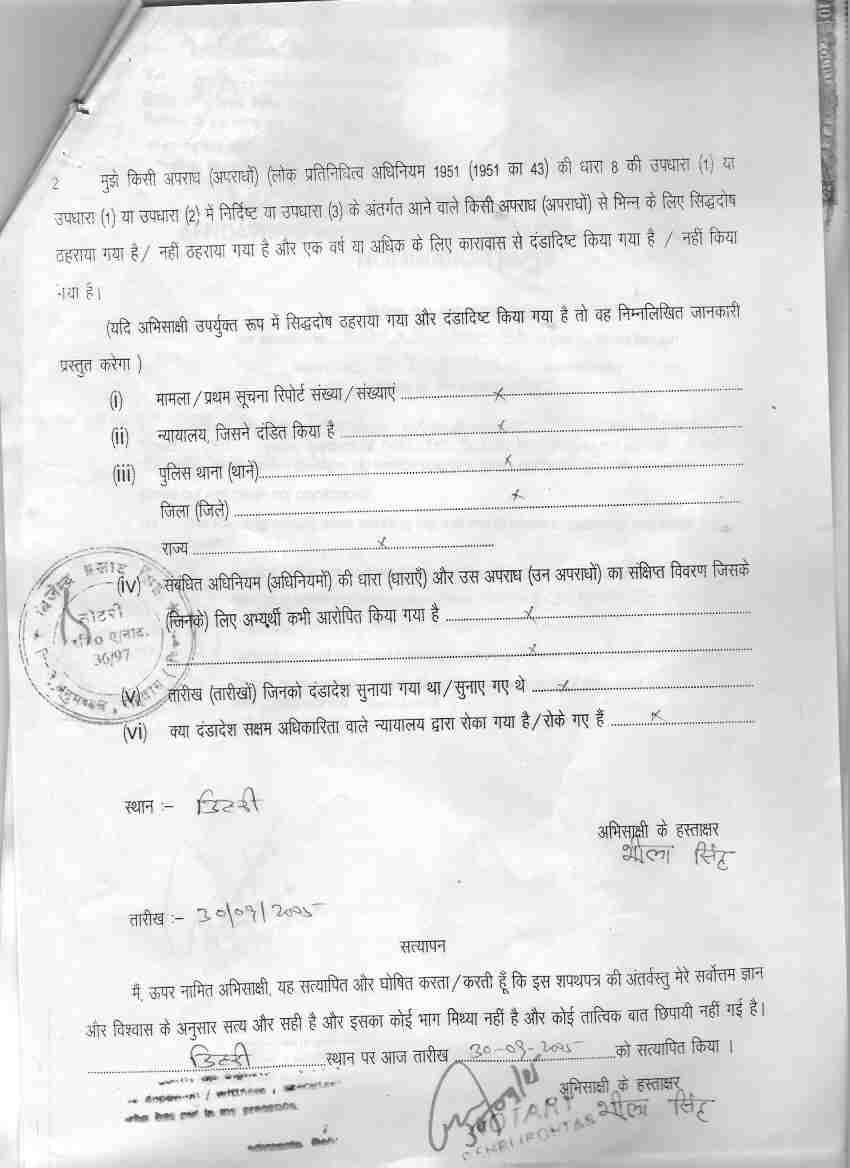 2 मुझे किसी अपराध (अपराधों) (लोक प्रतिनिधित्व अधिनियम 1951 (1951 का 43) की धारा 8 की उपधारा (1) या
उपधारा (1) या उपधारा (2) में निर्दिष्ट या उपधारा (3) के अंतर्गत आने वाले किसी अपराध (अपराधों) से भिन्न के लिए सिद्धदोष
ठहराया गया है / नहीं ठहराया गया है और एक वर्ष या अधिक के लिए कारावास से दंडादिष्ट किया गया है / नहीं किया
गया है।
(यदि अभिसाक्षी उपर्युक्त रूप में सिद्धदोष ठहराया गया और दंडादिष्ट किया गया है तो वह निम्नलिखित जानकारी
प्रस्तुत करेगा )
(i) मामला/प्रथम सूचना रिपोर्ट संख्या/संख्याएं ........ x
(ii) न्यायालय, जिसने दंडित किया है ........ x
(iii) पुलिस थाना (थाने)........ x
जिला (जिले) ........ x
राज्य ........ x
(iv) संबंधित अधिनियम (अधिनियमों) की धारा (धाराएँ) और उस अपराध (उन अपराधों) का संक्षिप्त विवरण जिसके
(जिनके) लिए अभ्यर्थी कभी आरोपित किया गया है ........ x
........ x
(v) तारीख (तारीखों) जिनको दंडादेश सुनाया गया था/सुनाए गए थे ........ x
(vi) क्या दंडादेश सक्षम अधिकारिता वाले न्यायालय द्वारा रोका गया है/रोके गए हैं ........ x
प्रसाद
नोटरी
36/97
स्थान :-
अभिसाक्षी के हस्ताक्षर
भोला सिंह
तारीख :- 30/09/2005
सत्यापन
मैं, ऊपर नामित अभिसाक्षी, यह सत्यापित और घोषित करता/करती हूँ कि इस शपथपत्र की अंतर्वस्तु मेरे सर्वोत्तम ज्ञान
और विश्वास के अनुसार सत्य और सही है और इसका कोई भाग मिथ्या नहीं है और कोई तात्विक बात छिपायी नहीं गई है।
........ स्थान पर आज तारीख 30-09-2005 को सत्यापित किया ।
अभिसाक्षी के हस्ताक्षर
who has put in my presence.
NOTARY
भोला सिंह